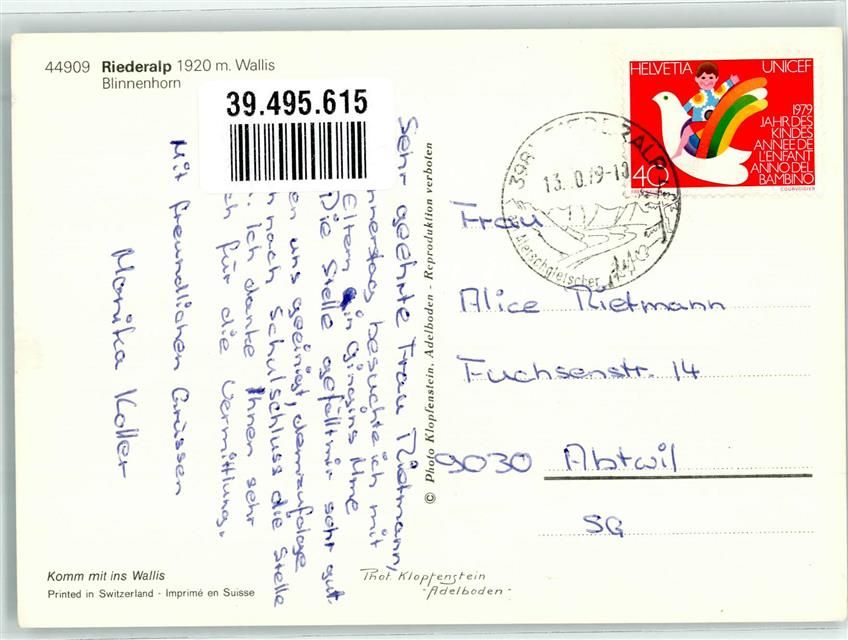 44909 Riederalp 1920 m. Wallis
Blinnenhorn
39.495.615
HELVETIA UNICEF
1979
JAHR DES
KINDES
ANNEE DE
L'ENFANT
ANNO DEL
BAMBINO
40
COURVOISIER
Aletschgletscher
Sehr geehrte Frau Rietmann,
besuchte ich mit
Eltern in Gingins Mme
Die Stelle gefällt mir sehr gut
uns geeinigt, demzufolge
nach Schulschluss die Stelle
Ich danke Ihnen sehr
für die Vermittlung.
Mit freundlichen Grüssen
Monika Koller
© Photo Klopfenstein, Adelboden - Reproduktion verboten
Frau
Alice Rietmann
Fuchsenstr. 14
9030 Abtwil
SG
Komm mit ins Wallis
Printed in Switzerland - Imprimé en Suisse
Phot. Klopfenstein
-Adelboden-